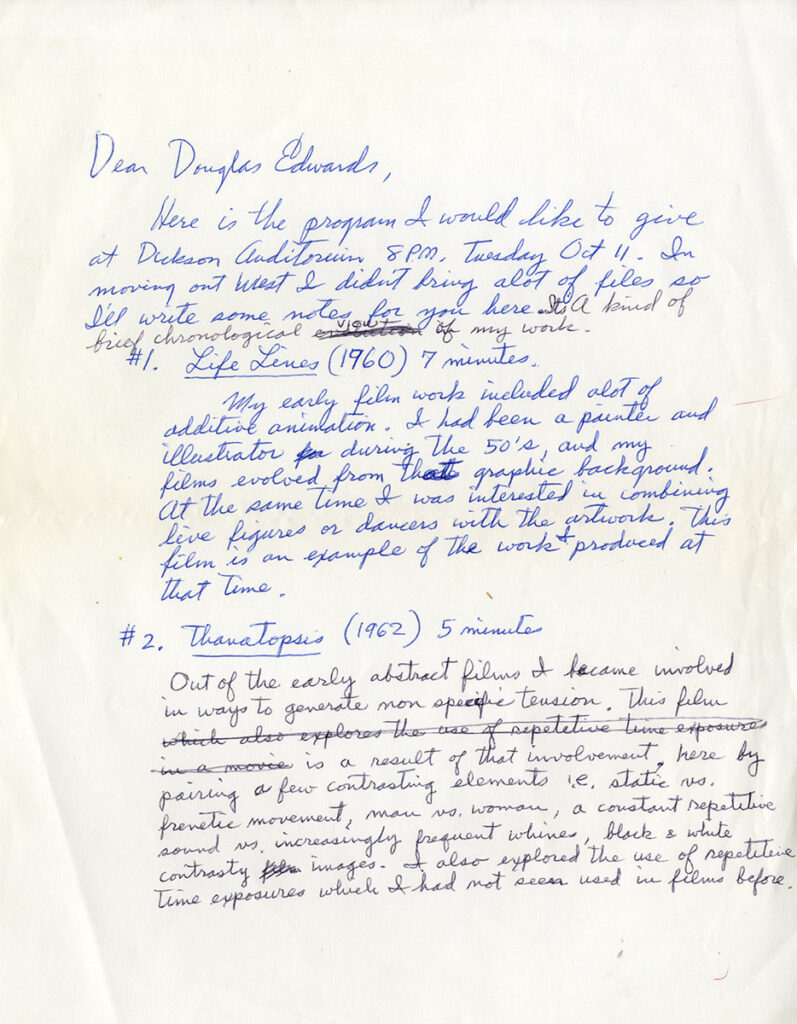 Dear Douglas Edwards,
Here is the program I would like to give
at Dickson Auditorium 8PM. Tuesday Oct 11. In
moving out West I didn't bring alot of files so
I'll write some notes for you here. It's A kind of
brief chronological view of my work.
#1. Life Lines (1960) 7 minutes.
My early film work included alot of
additive animation. I had been a painter and
illustrator during the 50's, and my
films evolved from that graphic background.
At the same time I was interested in combining
live figures or dancers with the artwork. This
film is an example of the work I produced at
that time.
#2. Thanatopsis (1962) 5 minutes
Out of the early abstract films I became involved
in ways to generate non specific tension. This film
which also explores the use of repetitive time exposures
in a movie is a result of that involvement, here by
pairing a few contrasting elements i.e. static vs.
frenetic movement, man vs. woman, a constant repetitive
sound vs. increasingly frequent whines, black & white
contrasty images. I also explored the use of repetitive
time exposures which I had not seen used in films before.